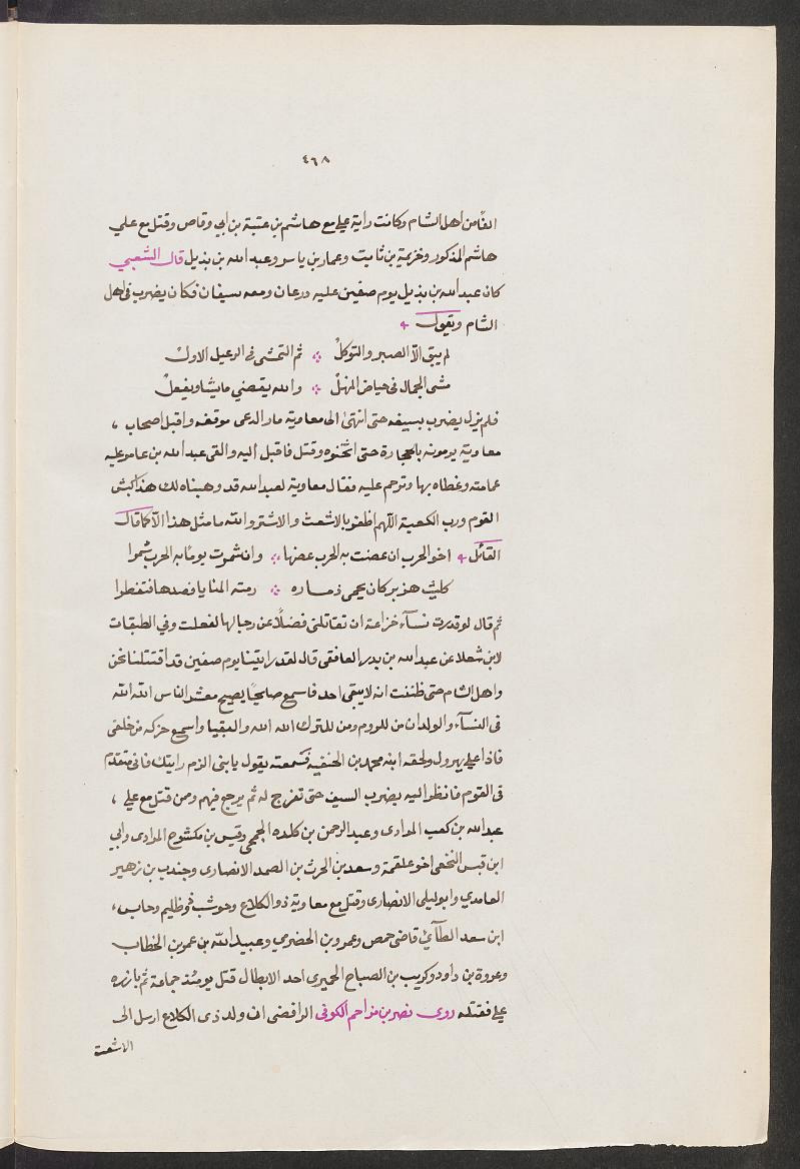 ٤٦٨
الفًا من اهل الشام وكانت راية علي مع هاشم بن عتبة بن ابي وقاص وقتل مع علي
هاشم المذكور وخزيمة بن ثابت وعمار بن ياسر وعبد الله بن بذيل قال الشعبي
كان عبد الله بن بذيل يوم صفين عليه درعان ومعه سيفان فكان يضرب في اهل
الشام ويقول
لم يبق الّا الصبر والتوكلْ ثم التمشى فى الرعيل الاولْ
مشى الجمال فى حياض المنهلْ والله يقضي ما يشا ويفعلْ
فلم يزل يضرب بسيفه حتى انتهى الى معاوية مار الدعى موقفه واقبل اصحاب ،
معاوية يرمونه بالحجارة حتى اثخنوه وقتل فاقبل اليه والقى عبد الله بن عامر عليه
عمامته وغطاه بها وترحم عليه فقال معاوية لعبد الله قد وهبناه لك هذا كبش
القوم ورب الكعبة اللهم اظفر بالاشعث والاشتر والله ما مثل هذا الّا كما قال
القائل اخو الحرب ان عضت به الحرب عضها وان شمرت يومًا به الحرب شمرا
كليث هزبر كان يحمى ذماره رمته المنايا قصدها فتفطرا
ثم قال لو قدرت نسآء خزاعة ان تقاتلنى فضلًا عن رجالها لفعلت وفي الطبقات
لابن شعلا عن عبد الله بن بدر الغافقى قال لقد رايتينا يوم صفين قد اقتتلنا نحن
واهل الشام حتى ظننت انه لا يبقى احد فاسمع صايحًا يصيح معشر الناس الله الله
فى النسآء والولدان من للروم ومن للترك الله الله والبقيا واسمع حركه من خلفى
فاذا علي يهرول ولحقه ابنه محمد بن الحنفيه فسمعته يقول يا بنى الزم رايتك فانى متقدم
فى القوم فانظر اليه يضرب السيف حتى تفرج له ثم يرجع فيهم ومن قتل مع علي ،
عبد الله بن كعب المرادى وعبد الرحمن بن كلده الجمحى وقيس بن مكشوح المرادى وابي
ابن قيس النخعى اخو علقمة وسعد بن الحرث بن الصمد الانصارى وجندب بن زهير
الغامدي وابو ليلى الانصارى وقتل مع معاوية ذو الكلاع وحوشب ذو ظليم وحابس
ابن سعد الطآئى قاضى حمص وعمرو بن الحضرمي وعبيد الله بن عمر بن الخطاب
وعروة بن داود وكريب بن الصباح الحميرى احد الابطال قتل يومئذ جماعة ثم بارزه
علي فقتله روى نصر بن مزاحم الكوفى الرافضى ان ولد ذى الكلاع ارسل الى
الاشعث